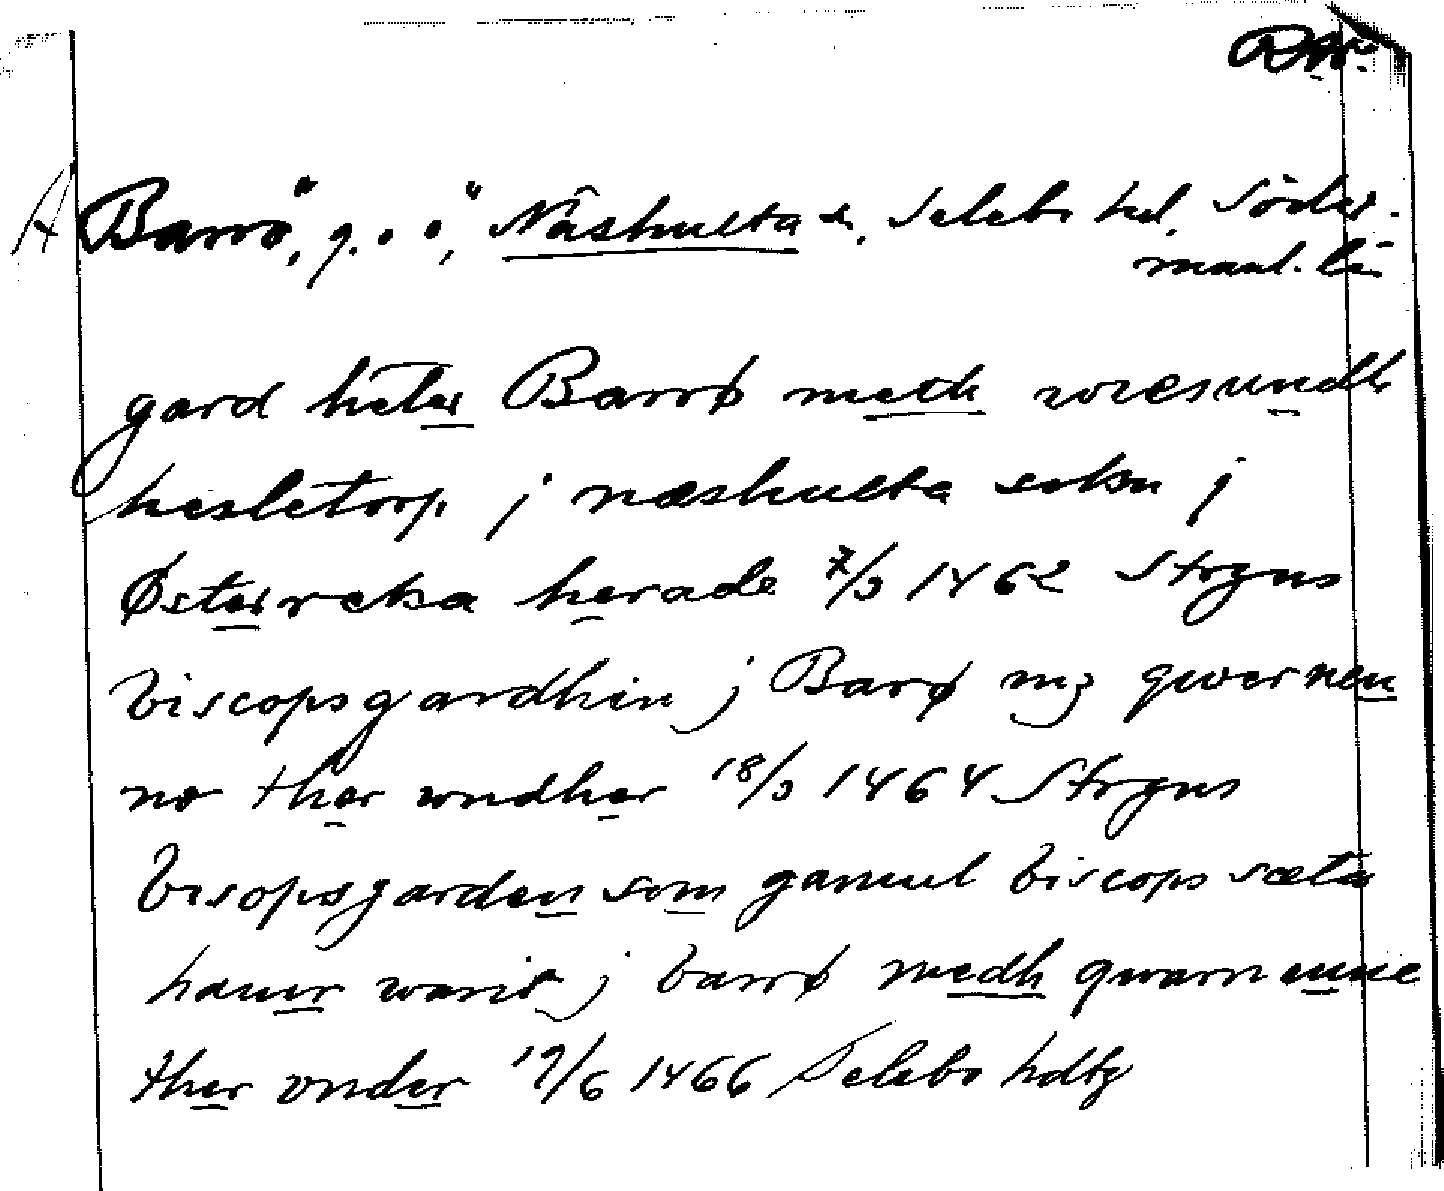 Barrö, g. o ö, Näshulta sn, Selebo hd, Söder-
manl. län
gard heter Barrø meth wresundh
hesletorp j næshulta sokn j
Østerrekka herade 7/3 1462 Strgns
biscopsgardhin j Barø mz qwernen
no ther wndher 18/3 1464 Strgns
bisopsgarden som gamul biscops sæter
hauer warit j barrø medh qwarnenne
ther vnder 19/6 1466 Selebo hdtg